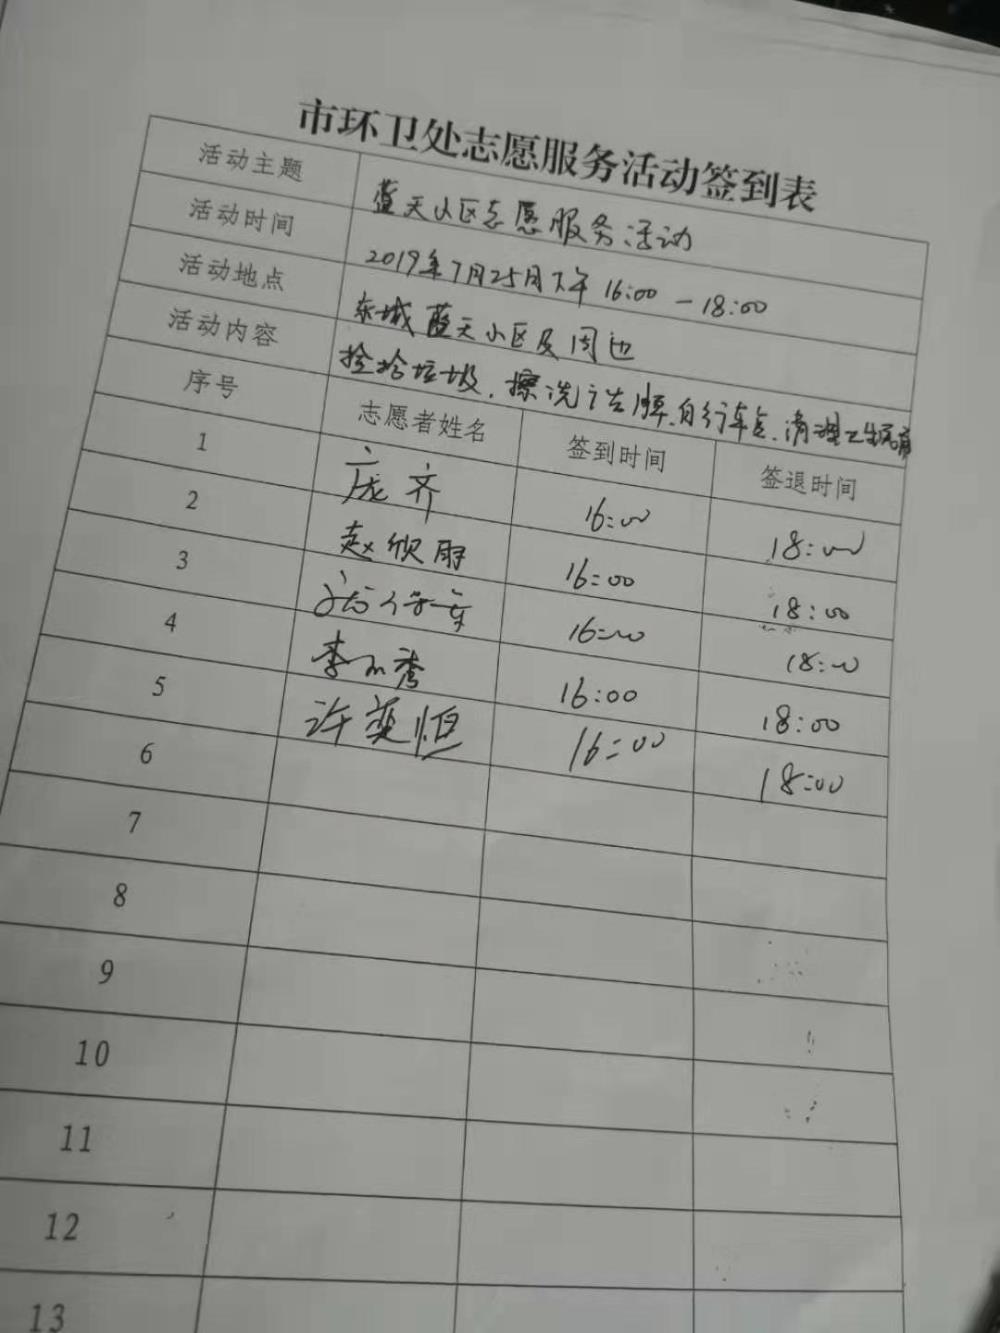 市环卫处志愿服务活动签到表
活动主题 蓝天小区志愿服务活动
活动时间 2019年7月25日下午 16:00-18:00
活动地点 东城蓝天小区及周边
活动内容 捡拾垃圾、擦洗广告牌、自行车、清理卫生
序号 志愿者姓名 签到时间 签退时间
1 庞齐 16:00 18:00
2 赵欣雨 16:00 18:00
3 16:00 18:00
4 李 秀 16:00 18:00
5 许英恒 16:00 18:00
6
7
8
9
10
11
12
13